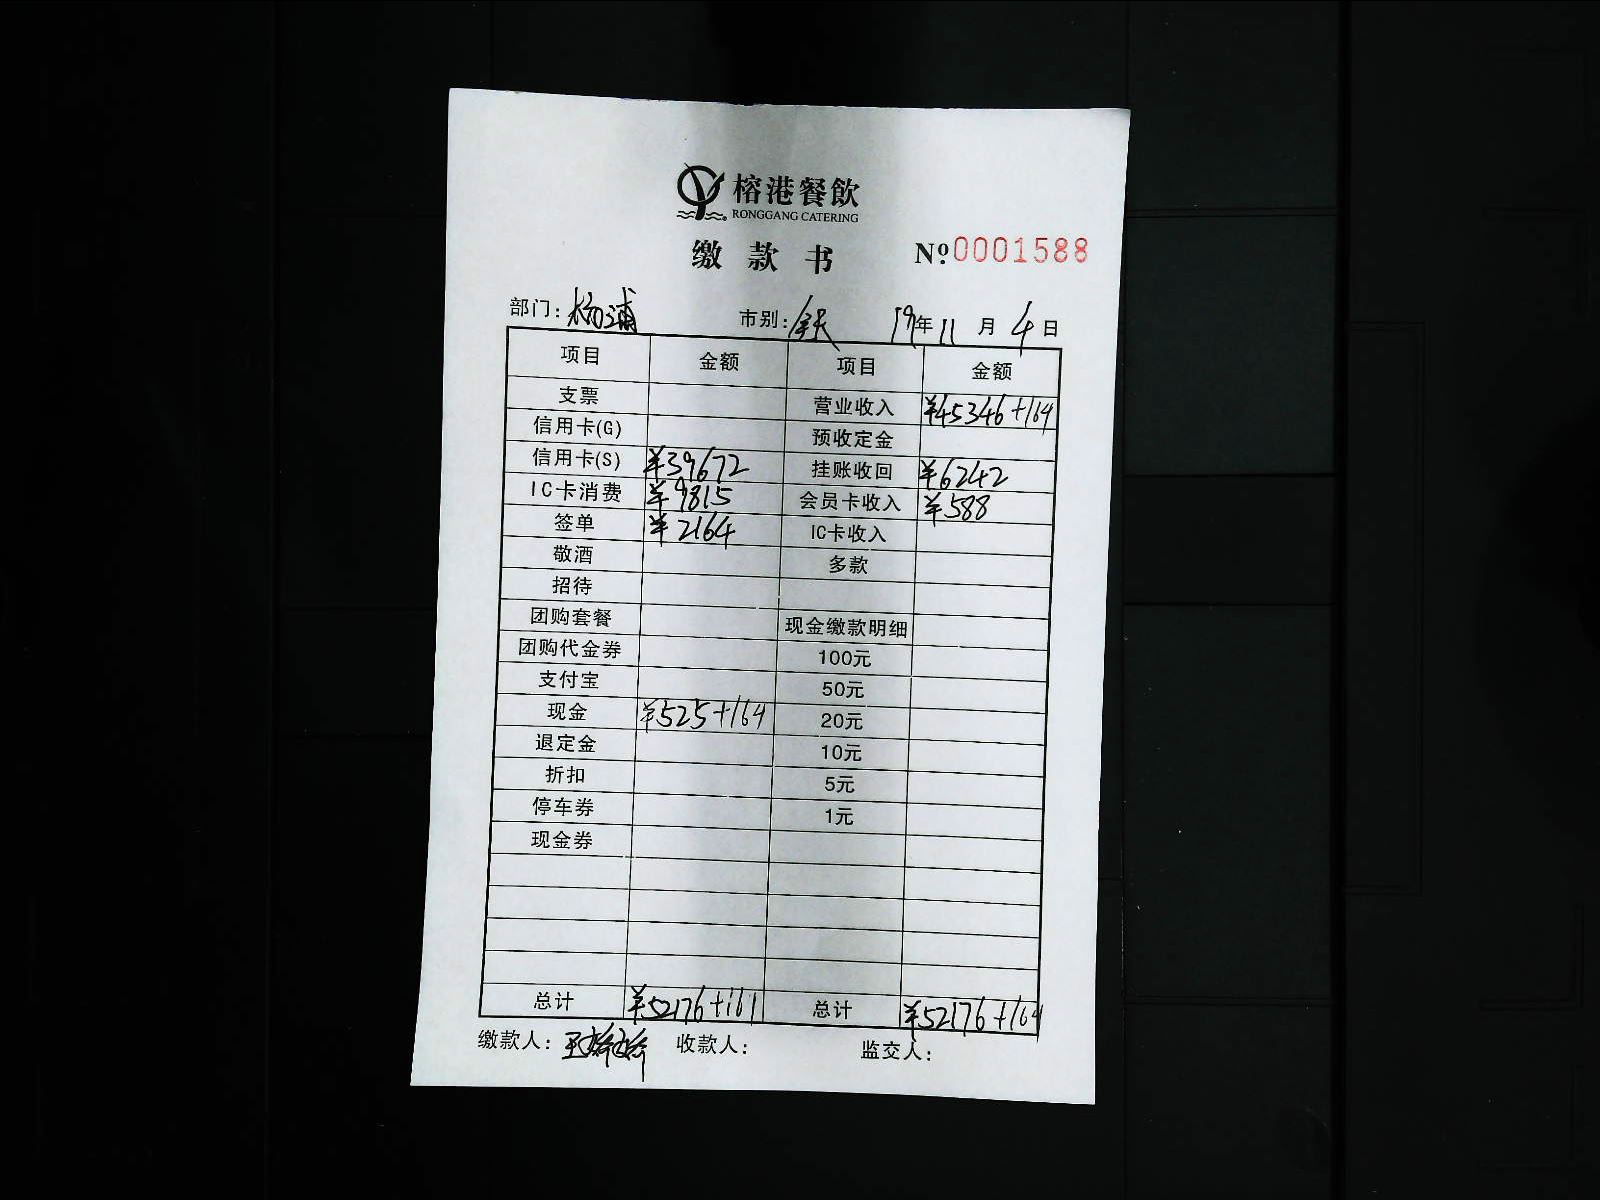 榕港餐飲
RONGGANG CATERING
缴款书 Nº 0001588
部门：杨浦 市别：全天 19年11月4日
项目 金额 项目 金额
支票 营业收入 ¥45346+164
信用卡(G) 预收定金
信用卡(S) ¥39672 挂账收回 ¥6242
IC卡消费 ¥9815 会员卡收入 ¥588
签单 ¥2164 IC卡收入
敬酒 多款
招待
团购套餐 现金缴款明细
团购代金券 100元
支付宝 50元
现金 ¥525+164 20元
退定金 10元
折扣 5元
停车券 1元
现金券
总计 ¥52176+161 总计 ¥52176+164
缴款人： 收款人： 监交人：